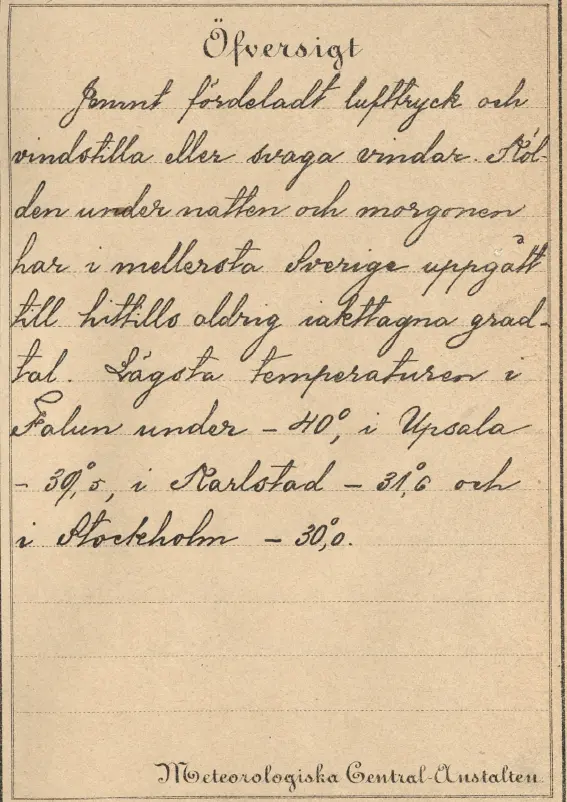 Öfversigt
Jemnt fördeladt lufttryck och
vindstilla eller svaga vindar. Köl-
den under natten och morgonen
har i mellersta Sverige uppgått
till hittills aldrig iakttagna grad-
tal. Lägsta temperaturen i
Falun under - 40°, i Upsala
- 39°,5, i Karlstad - 31°,6 och
i Stockholm - 30°,0.
Meteorologiska Central-Anstalten